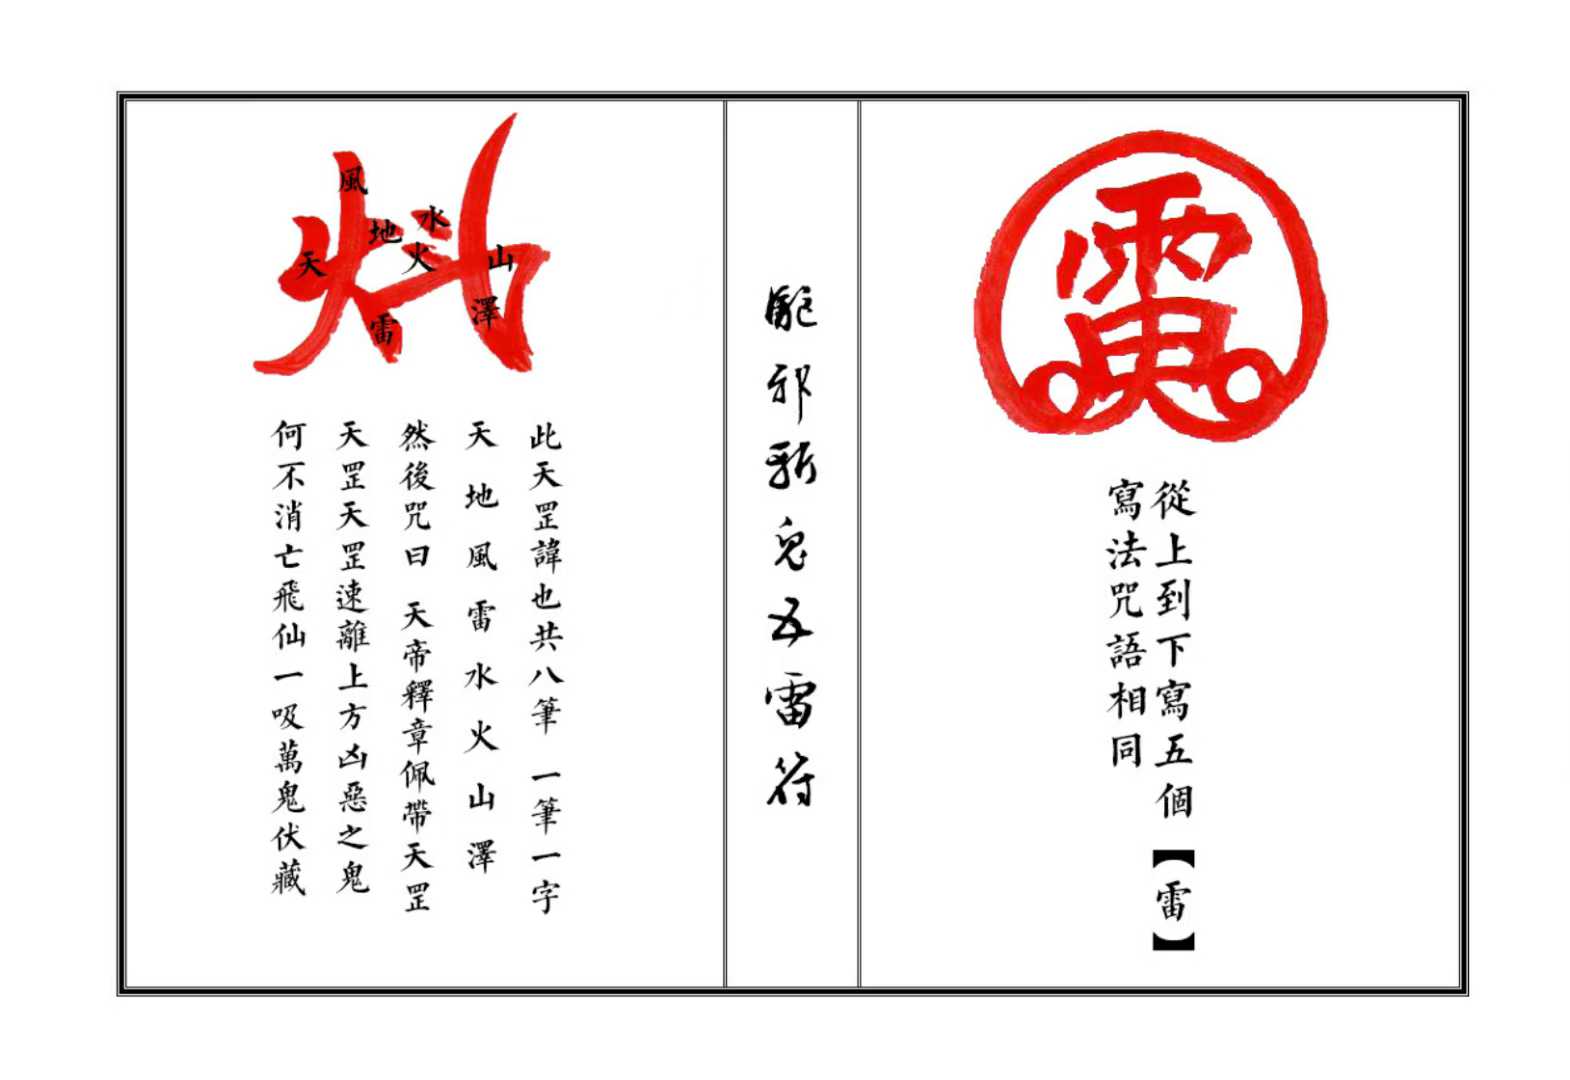 雷
從上到下寫五個【雷】
寫法咒語相同
驅邪斬鬼五雷符
風
水
地
火
天
山
澤
雷
此天罡諱也共八筆 一筆一字
天地風雷水火山澤
然後咒曰 天帝釋章佩帶天罡
天罡天罡速離上方凶惡之鬼
何不消亡飛仙一吸萬鬼伏藏